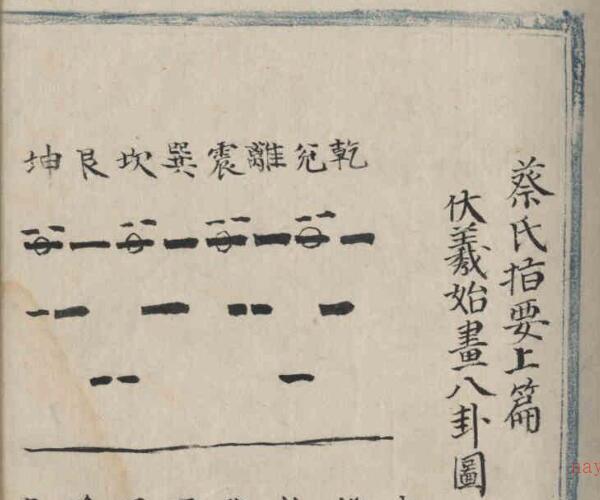 蔡氏指要上篇
伏羲始畫八卦圖
乾兌離震巽坎艮坤